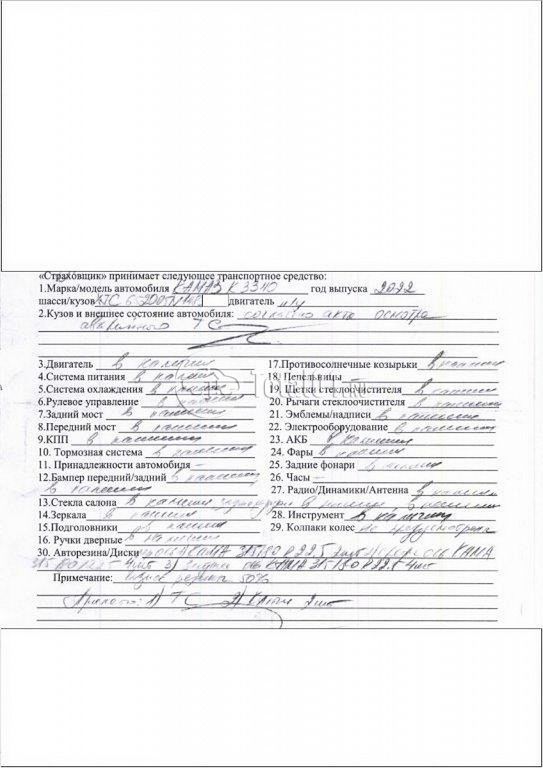 «Страховщик» принимает следующее транспортное средство:
1.Марка/модель автомобиля КАМАЗ К3340 год выпуска 2022
шасси/кузов двигатель н/у
2.Кузов и внешнее состояние автомобиля: согласно акта осмотра
аварийного ТС
3.Двигатель в наличии 17.Противосолнечные козырьки в наличии
4.Система питания в наличии 18. Пепельницы –
5.Система охлаждения в наличии 19. Щетки стеклоочистителя в наличии
6.Рулевое управление в наличии 20. Рычаги стеклоочистителя в наличии
7.Задний мост в наличии 21. Эмблемы/надписи в наличии
8.Передний мост в наличии 22. Электрооборудование в наличии
9.КПП в наличии 23. АКБ в наличии
10. Тормозная система в наличии 24. Фары в наличии
11. Принадлежности автомобиля – 25. Задние фонари в наличии
12.Бампер передний/задний в наличии 26. Часы –
в наличии 27. Радио/Динамики/Антенна в наличии
13.Стекла салона в наличии в наличии
14.Зеркала в наличии 28. Инструмент в наличии
15.Подголовники в наличии 29. Колпаки колес не предусмотрено
16. Ручки дверные в наличии
30. Авторезина/Диски КАМА 315/80 R22.5 2шт ось КАМА
315 80 R22.5 4шт 3) Задняя ось КАМА 315/80 R22.5 4шт
Примечание: Износ резины 50%
1) ТС 2) Ключи 2шт